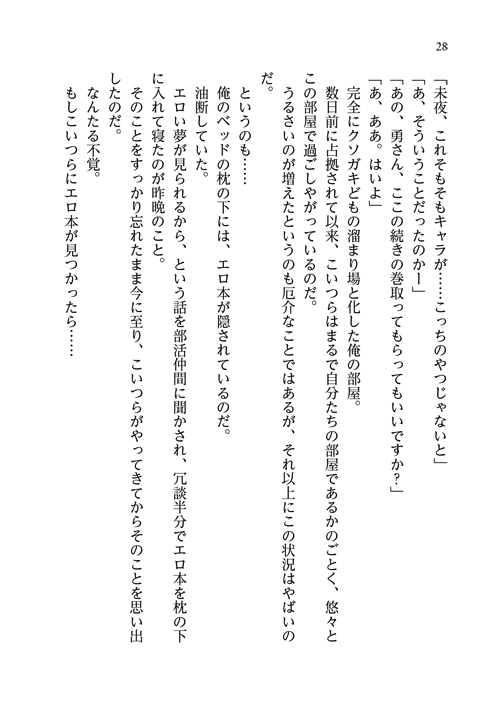 28
「未夜、これそもそもキャラが……こっちのやつじゃないと」
「あ、そういうことだったのかー」
「あの、勇さん、ここの続きの巻取ってもらってもいいですか？」
「あ、ああ。はいよ」
完全にクソガキどもの溜まり場と化した俺の部屋。
数日前に占拠されて以来、こいつらはまるで自分たちの部屋であるかのごとく、悠々と
この部屋で過ごしやがっているのだ。
うるさいのが増えたというのも厄介なことではあるが、それ以上にこの状況はやばいの
だ。
というのも……
俺のベッドの枕の下には、エロ本が隠されているのだ。
油断していた。
エロい夢が見られるから、という話を部活仲間に聞かされ、冗談半分でエロ本を枕の下
に入れて寝たのが昨晩のこと。
そのことをすっかり忘れたまま今に至り、こいつらがやってきてからそのことを思い出
したのだ。
なんたる不覚。
もしこいつらにエロ本が見つかったら……